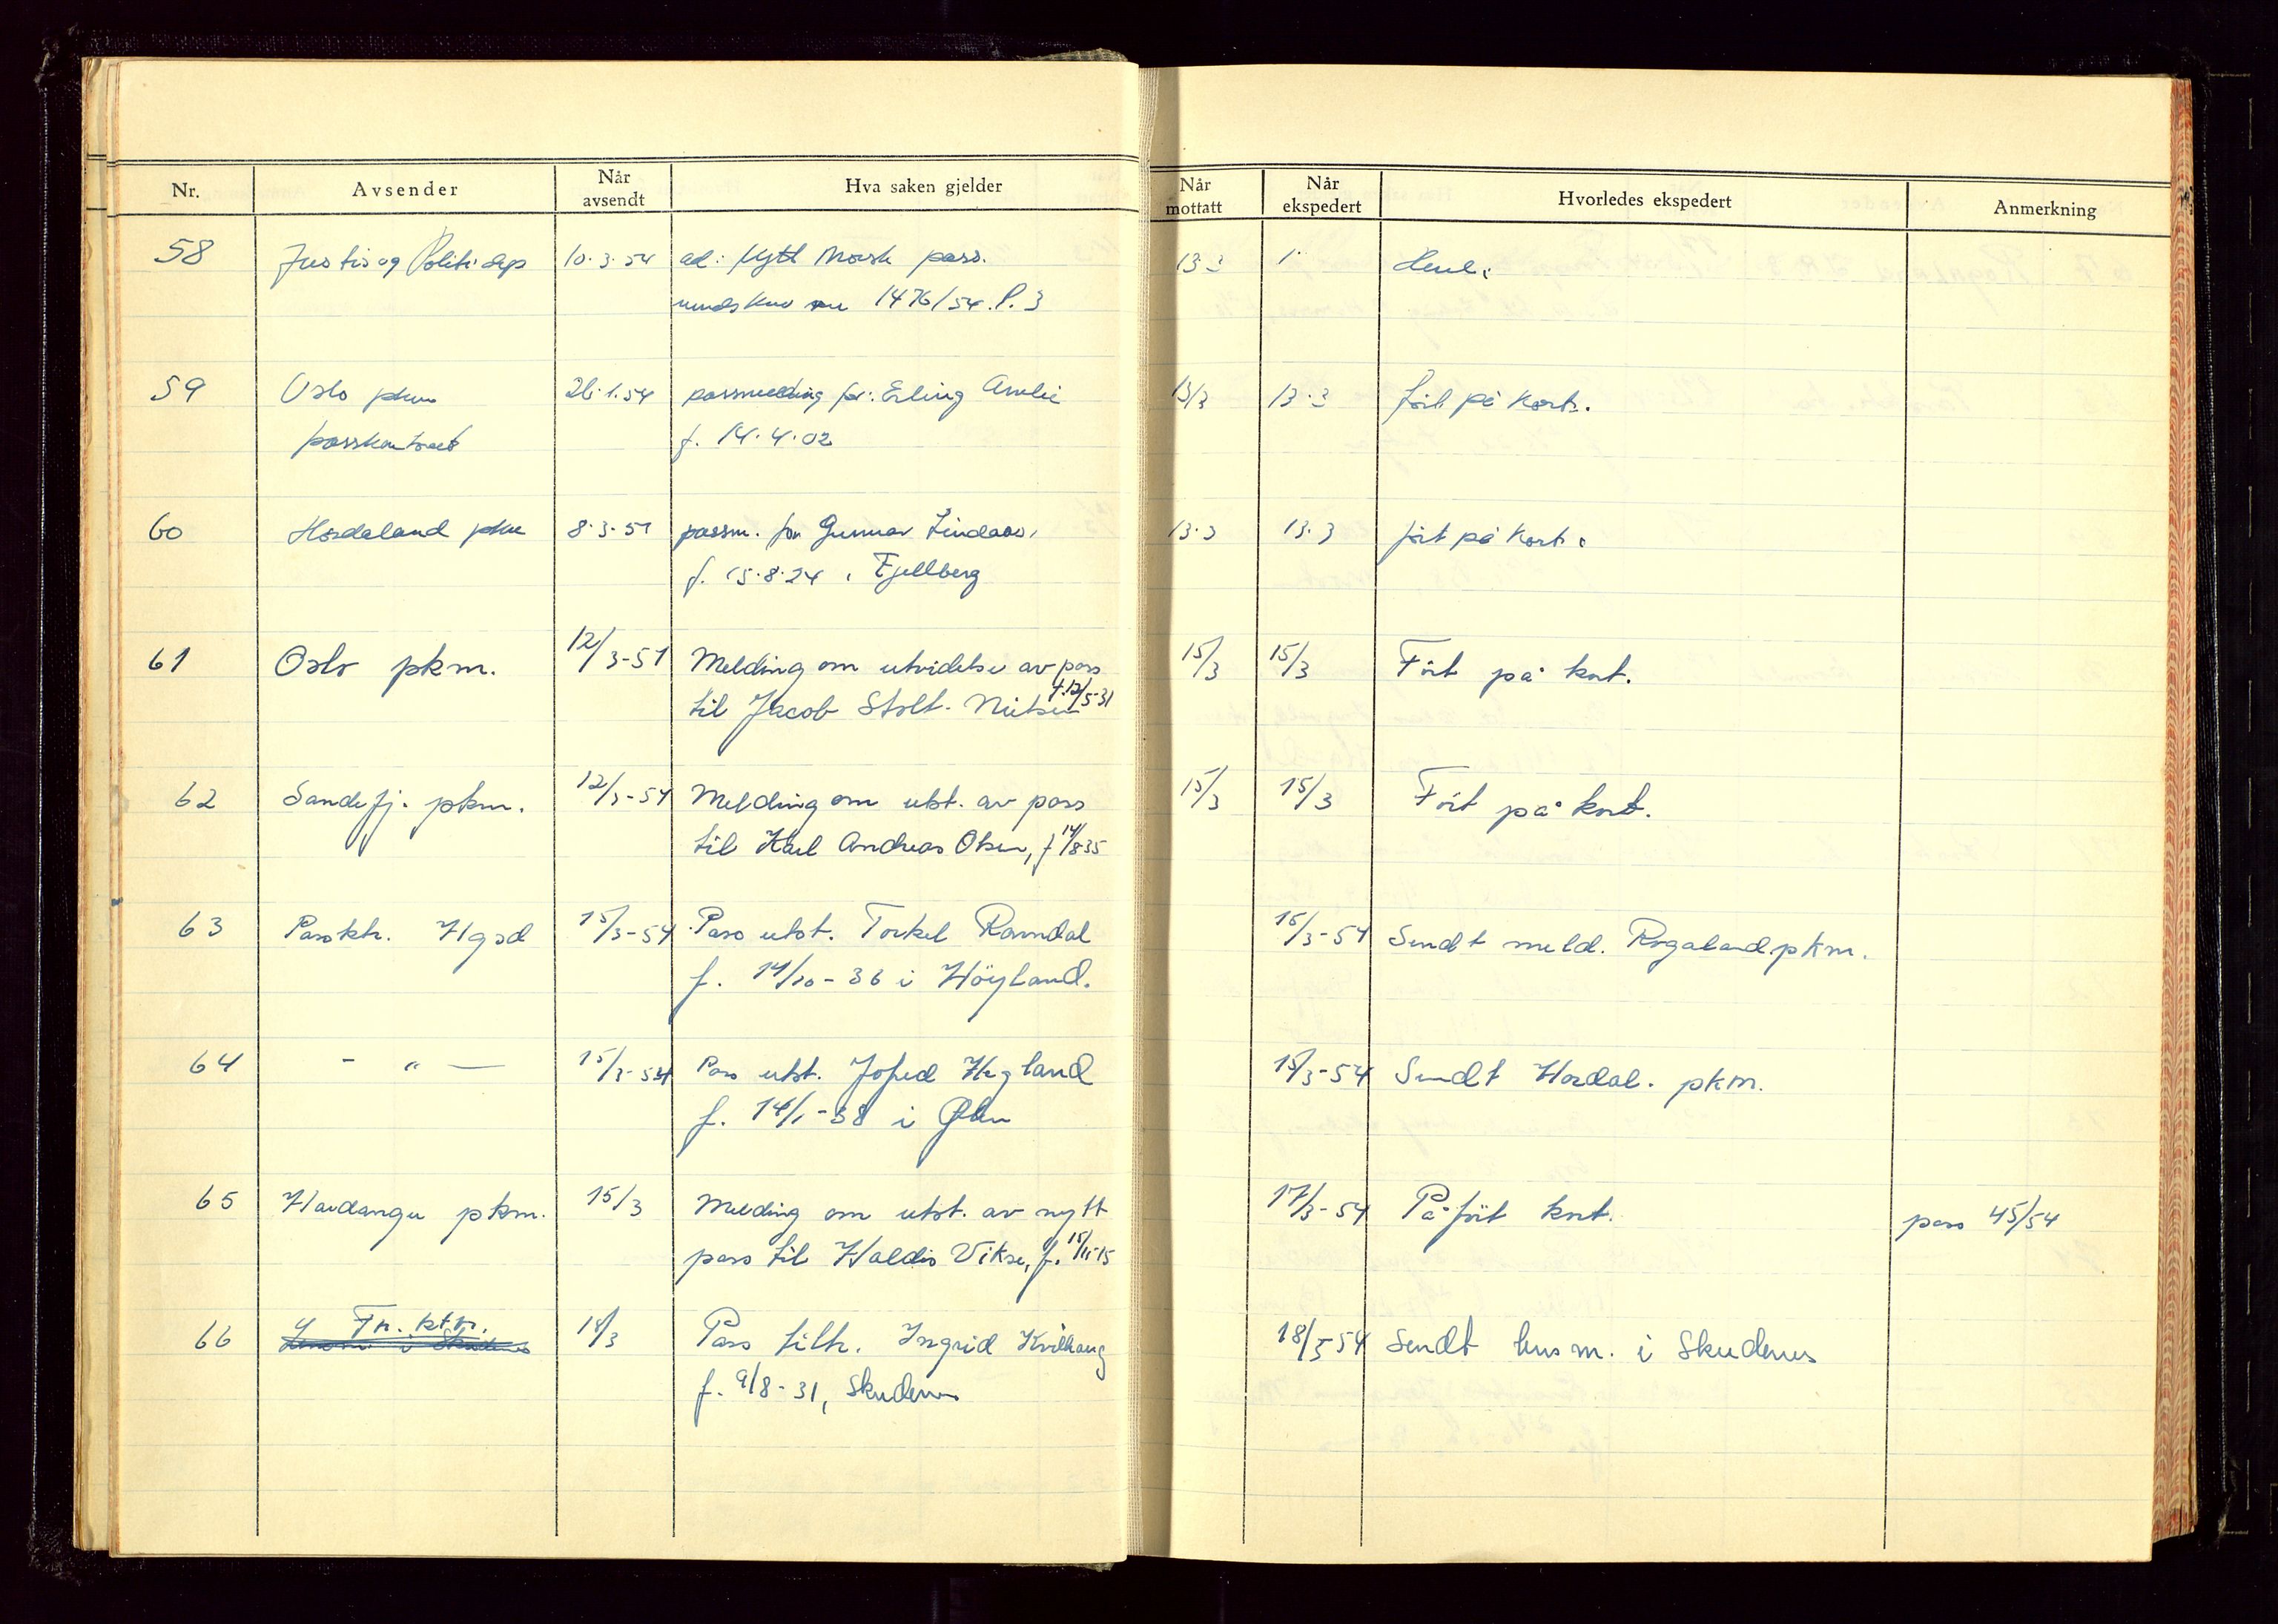 Nr. Avsender Når avsendt Hva saken gjelder Når mottatt Når ekspedert Hvorledes ekspedert Anmerkning
58 Justis og Politidep 10.3.54 ad: Nytt Norsk pass. 13.3 Henl.
rundskriv nr 1476/54.P.3
59 Oslo pkm 26.1.54 passmelding for: Erling Amlie 13/3 13.3 ført på kort.
passkontoret f. 14.4.02
60 Hordaland pkm 8.3.54 passm. for Gunnar Lindaas, 13.3 13.3 ført på kort.
f. 15.8.24 i Fjellberg
61 Oslo pkm. 12/3-54 Melding om utvidelse av pass 15/3 15/3 Ført på kort.
til Jacob Stolt-Nielsen f. 12/5-31
62 Sandefj. pkm. 12/3-54 Melding om utst. av pass 15/3 15/3 Ført på kort.
til Karl Andreas Olsen, f 14/8 35
63 Pasktr. Hgsd 15/3-54 Pass utst. Torkel Ravndal 15/3-54 Sendt meld. Rogaland pkm.
f. 14/10-36 i Höyland.
64 - " — 15/3-54 Pass utst. 15/3-54 Sendt Hordal. pkm.
f. 14/1-38 i Ølen
65 Hardanger pkm. 15/3 Melding om utst. av nytt 17/3-54 Påført kort. pass 45/54
pass til Haldis Vikse, f. 15/11-15
66 14/3 Pass tilh. Ingrid Kvilhaug 18/3-54 Sendt lensm. i Skudenes
f. 9/8-31, Skudenes